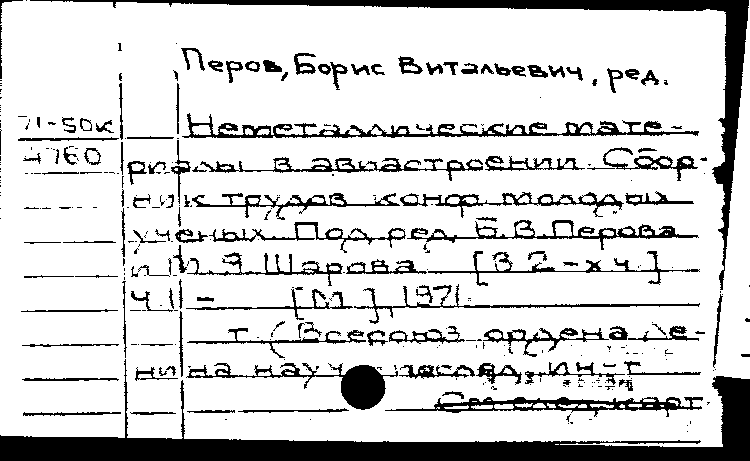 Перов, Борис Витальевич, ред.
71-50к
4760
Неметаллические мате-
риалы в авиастроении. Сбор-
ник трудов конф. молодых
ученых. Под ред. Б.В. Перова
и М.Я. Шарова [В 2-х ч.]
Ч II - [М], 1971.
т. (Всесоюз. ордена Ле-
нина науч исслед. ин-т
См след. карт